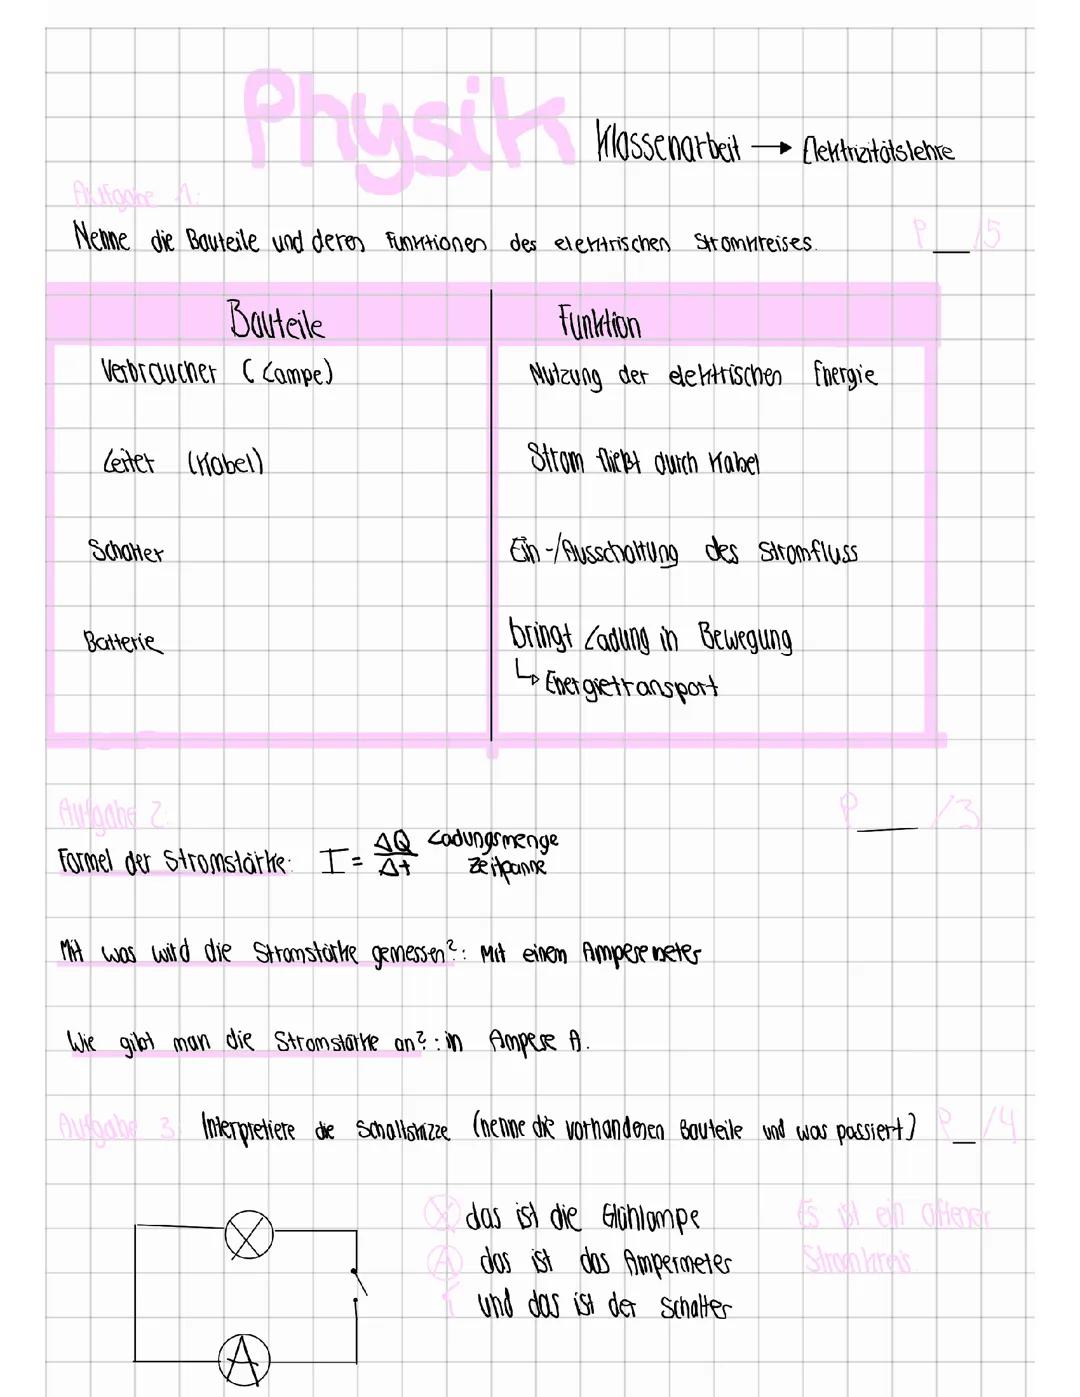 Physik
Klassenarbeit → Elektrizitätslehre
Aufgabe 1:
Nenne die Bauteile und deren Funktionen des elektrischen Stromkreises. P __ /5
Bauteile Funktion
Verbraucher (Lampe) Nutzung der elektrischen Energie
Leiter (Kabel) Strom fließt durch Kabel
Schalter Ein-/Ausschaltung des Stromfluss
Batterie bringt Ladung in Bewegung
↳ Energietransport
Aufgabe 2: P __ /3
Formel der Stromstärke: I = ΔQ/Δt Ladungsmenge
Zeitpanne
Mit was wird die Stromstärke gemessen?: Mit einem Amperemeter
Wie gibt man die Stromstärke an?: in Ampere A.
Aufgabe 3 Interpretiere die Schaltskizze (nenne die vorhandenen Bauteile und was passiert) P __ /4
das ist die Glühlampe Es ist ein offener
A das ist das Ampermeter Stromkreis
und das ist der Schalter
A